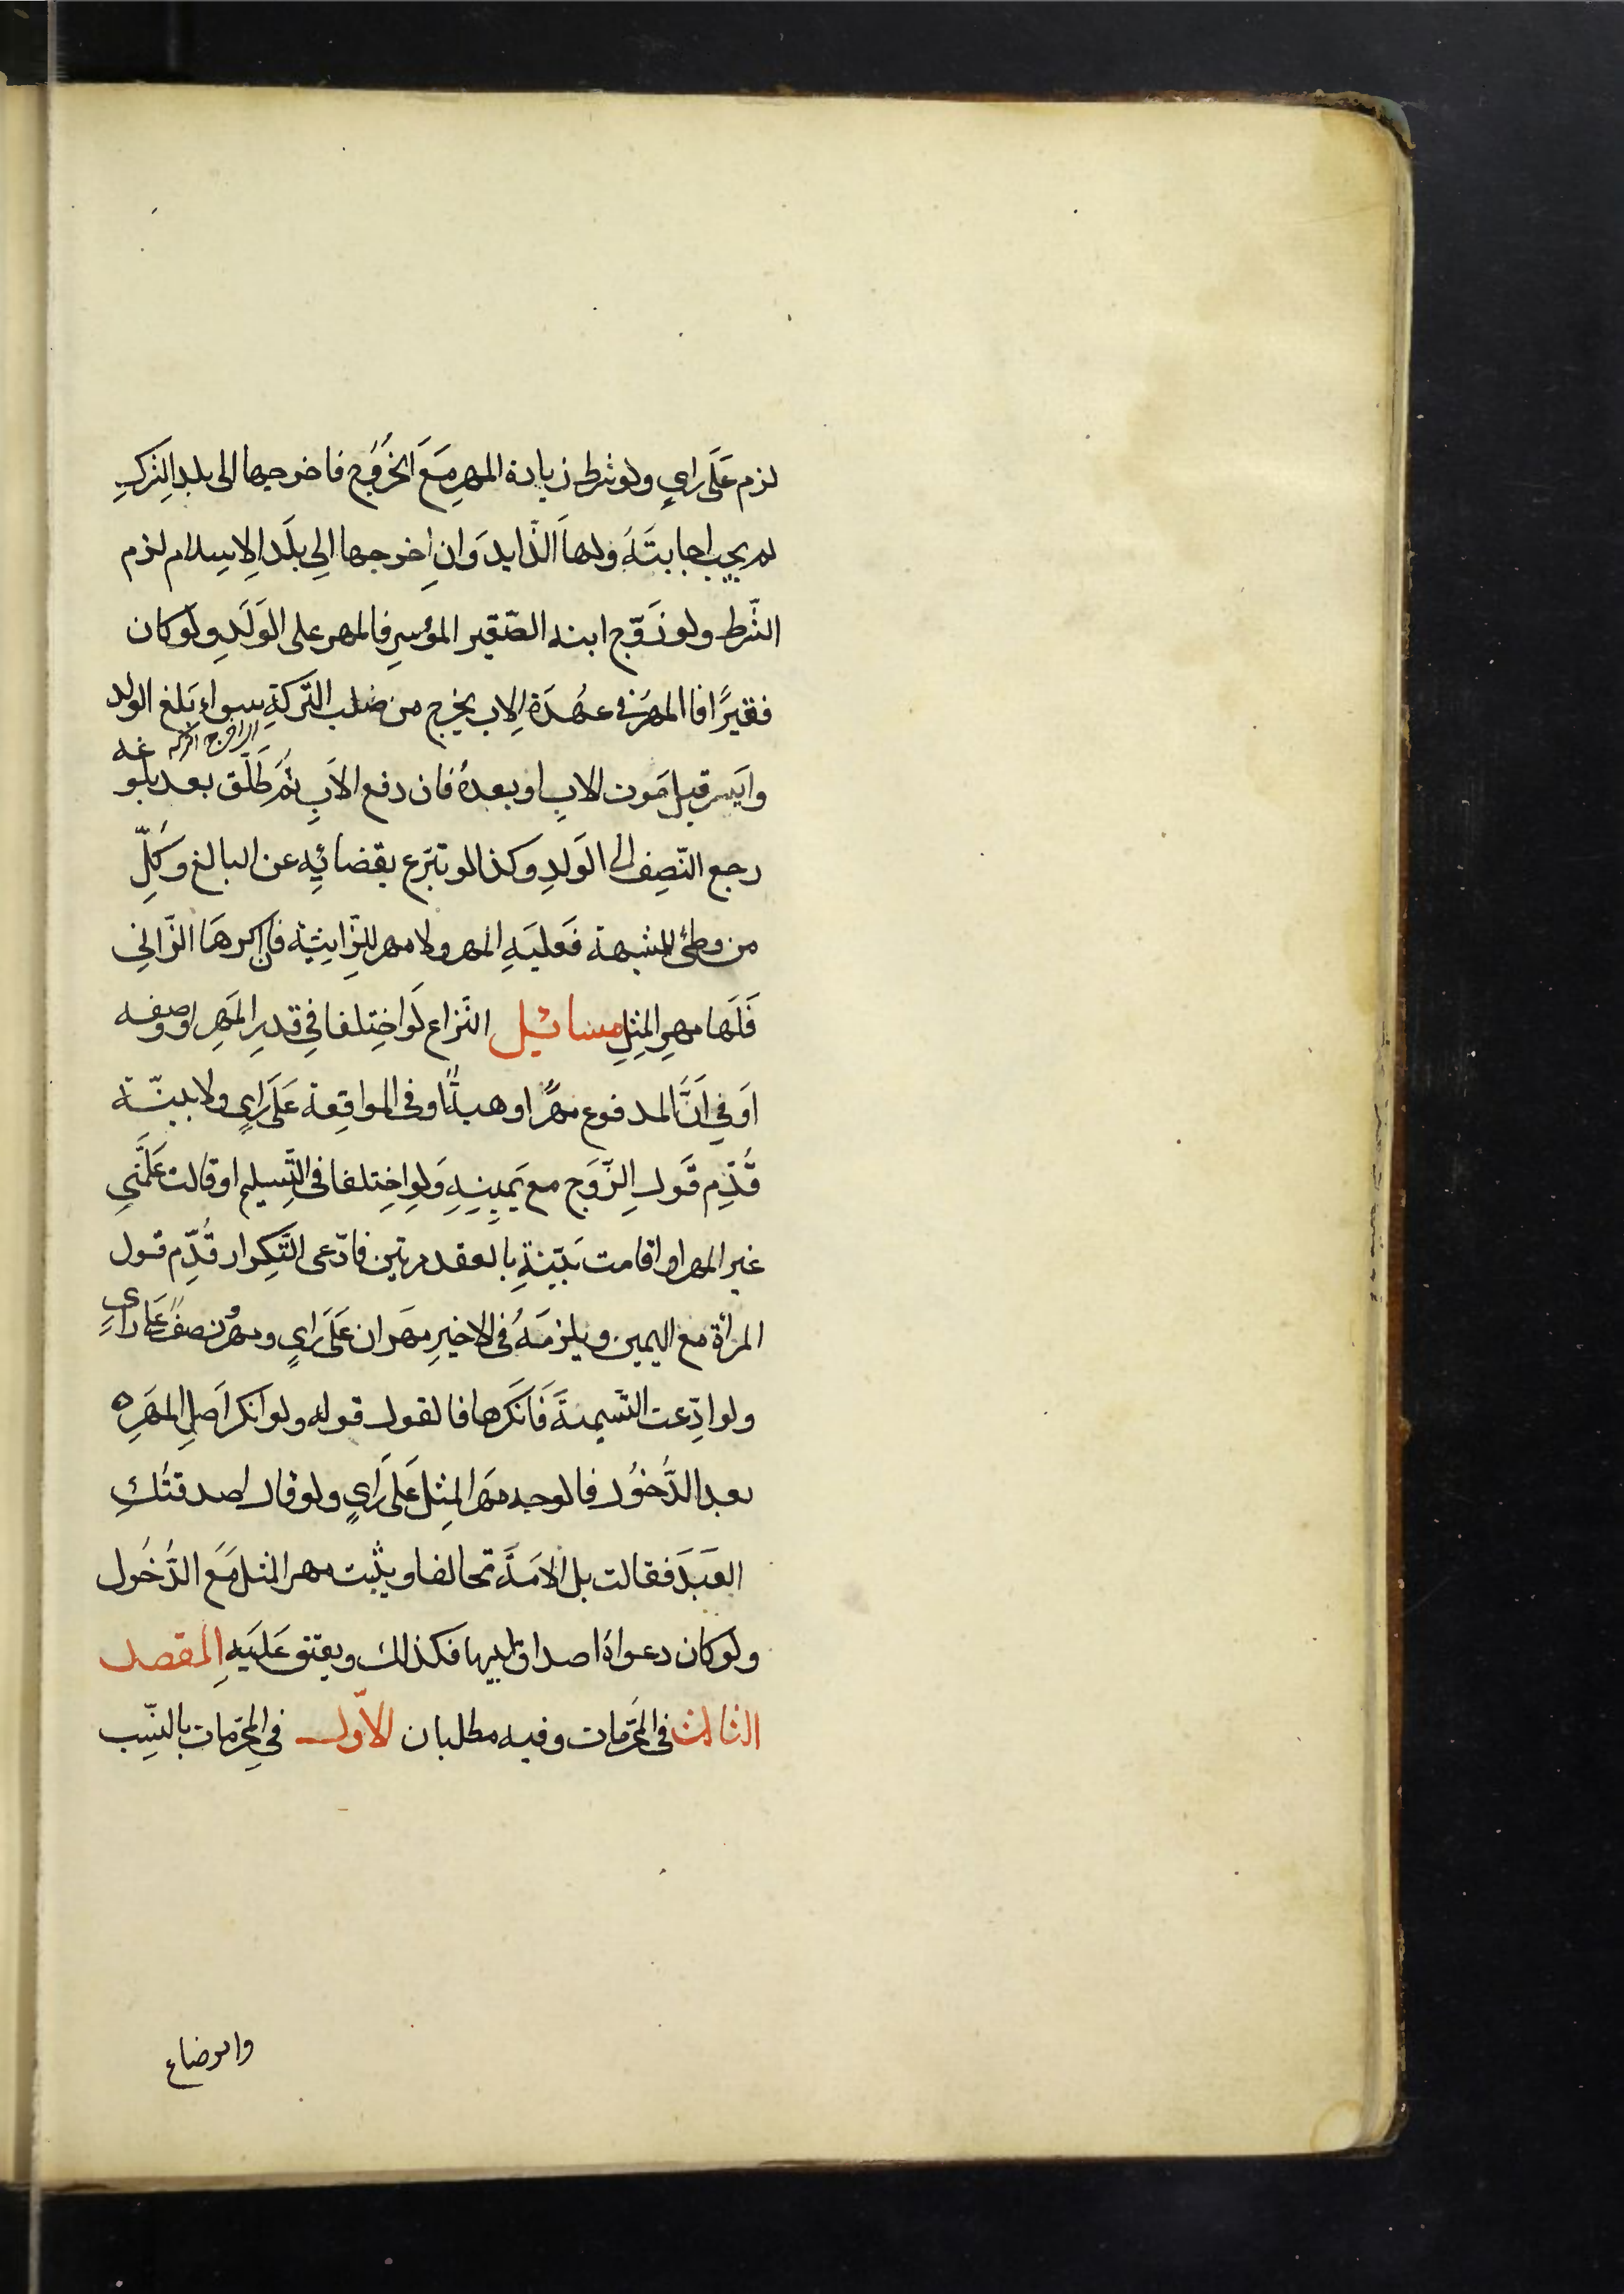 لزم عَلَى رايٍ ولو شرط زيادة المهرِ مَعَ الخُرُوج فاخرجها الى بلد الشركِ
لم يجب اجابتَهُ ولها الزّايد وَان اِخرجها اِلى بلَد الاِسلام لزم
الشّرط ولو زَوّج ابنه الصّغير المؤسرِ فالمهر على الوَلَدِ ولو كان
فقيرًا فاالمهرُ في عهُدَة الاِب يخرج من صُلب التّركةِ سواء بَلغ الولد
وايَسر قبل مَوت الاب او بعدهُ فان دفع الاَبِ ثُمَّ طَلّق بعد بلوغه
رجع النّصِف الى الوَلدِ وكذا لو تبرّع بقضائِه عن البالغ وَكُلّ
من وطئ للشبهة فَعليَهِ المهر ولا مهر للزّانِيَة فان اكرهَا الزّانى
فَلَها مهرِ المثِلِ مسائِل النّزاع لَو اختِلفا فىِ قدرِ المَهرِ او وصفه
اَو فى اَنَّ المدفوع مهرًا او هبةً او فى المواقِعة عَلَى رايٍ ولا بيّنة
قُدِّم قَول الزّوَج مع يَمينِهِ وَلو اختِلفا فى التّسليمِ او قالت عَلّمَنى
غير المهر او اقامت بَيّنةِ بالعقد مرتين فادّعى التّكرار قُدِّم قول
المراة مع اليمين ويلزمَهُ فى الاخيرِ مهرَان عَلَى رايٍ ومهرٌ نصفٌ عَلى رايٍ
ولو ادّعت التّسميةَ فَاَنكَرها فالقول قوله ولو انكر اَصل المهَرِه
بعد الدُّخُول فالوجه مهَر المثِل عَلَى رَايٍ ولو قال اصدقتُكِ
العَبَدَ فقالت بل الامَةَ تحالفا ويثبت مهر المثل مَعَ الدُّخُول
ولو كان دعواهُا صداق ابيها فكذلك ويعتق عَليَهِ المَقصد
الثالث فى المحَرّمات وفيه مطلبان الاّول فى المحِرّمات بالنّسِب
والرضاع